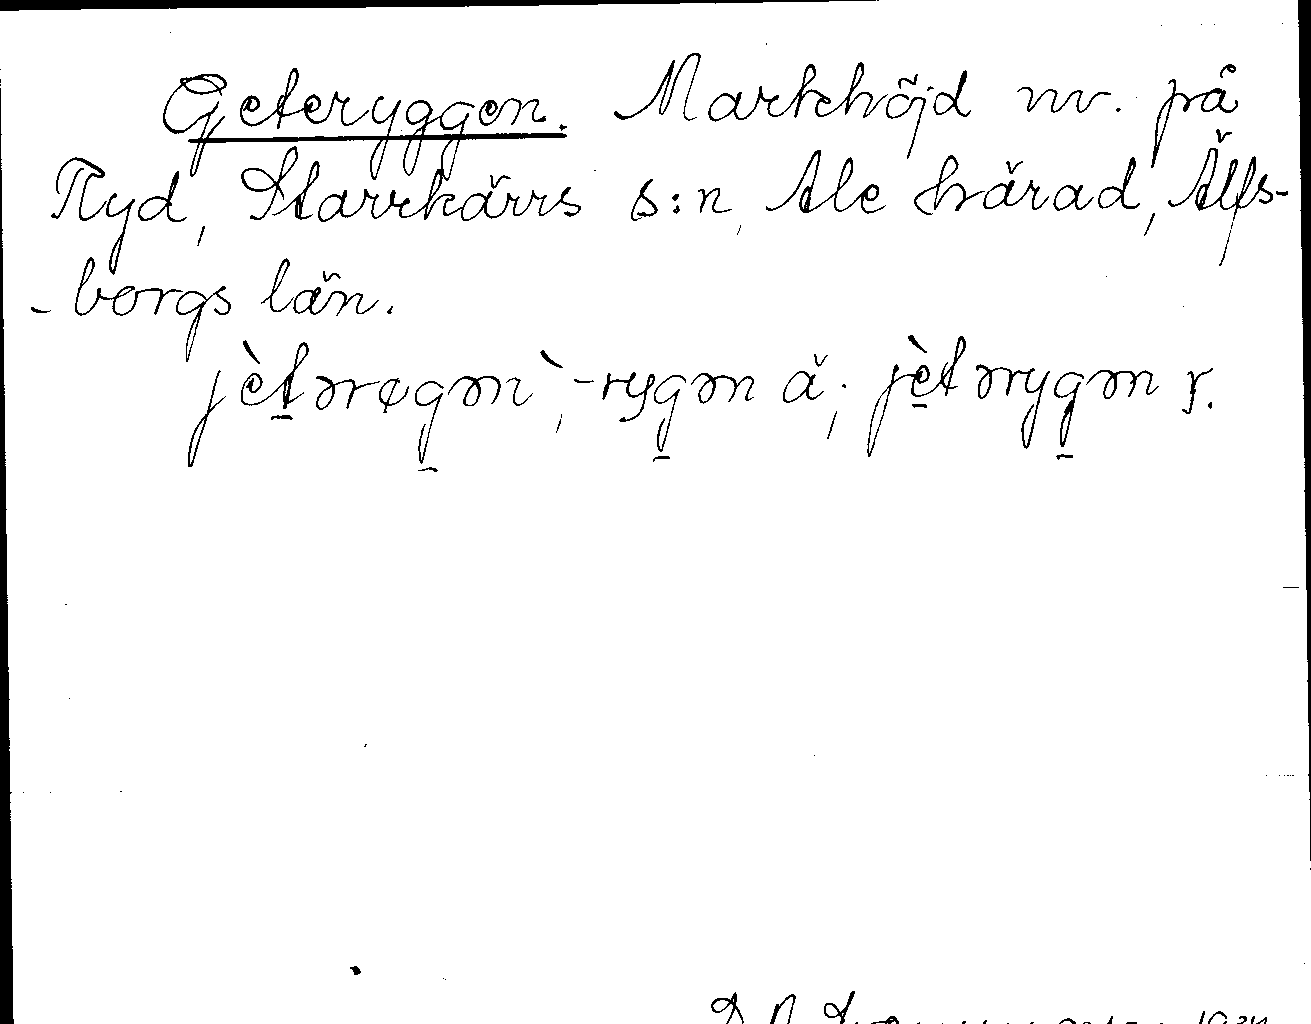 Geteryggen. Markhöjd nv. på
Ryd, Starrkärrs s:n, Ale härad, Älfs-
-borgs län.
jètərøgən`, -rygən ä; jètərygən y.